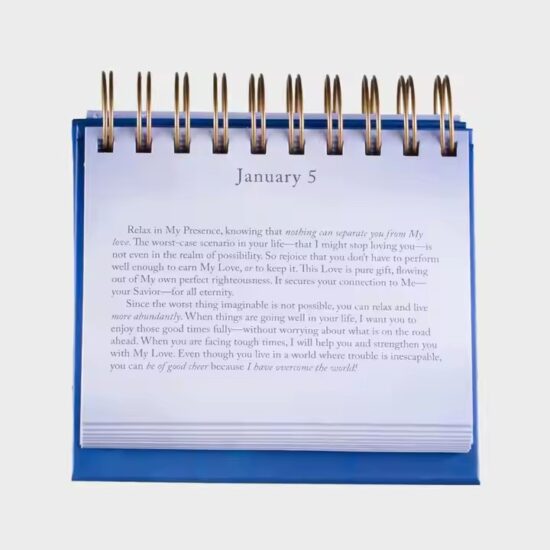 January 5
Relax in My Presence, knowing that nothing can separate you from My
love. The worst-case scenario in your life—that I might stop loving you—is
not even in the realm of possibility. So rejoice that you don't have to perform
well enough to earn My Love, or to keep it. This Love is pure gift, flowing
out of My own perfect righteousness. It secures your connection to Me—
your Savior—for all eternity.
Since the worst thing imaginable is not possible, you can relax and live
more abundantly. When things are going well in your life, I want you to
enjoy those good times fully—without worrying about what is on the road
ahead. When you are facing tough times, I will help you and strengthen you
with My Love. Even though you live in a world where trouble is inescapable,
you can be of good cheer because I have overcome the world!